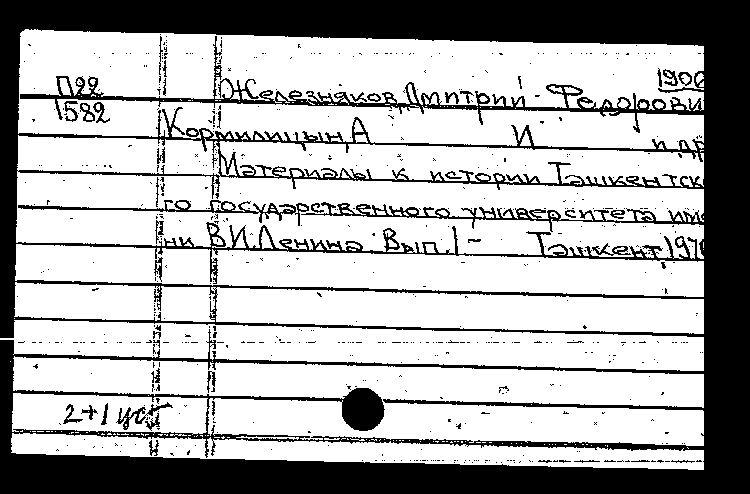 1906
П22 Железняков, Дмитрий Федорови
1582
Кормилицын, А И и др
Материалы к истории Ташкентско
го государственного университета име
ни В.И.Ленина Вып.1- Ташкент, 1976
2+1